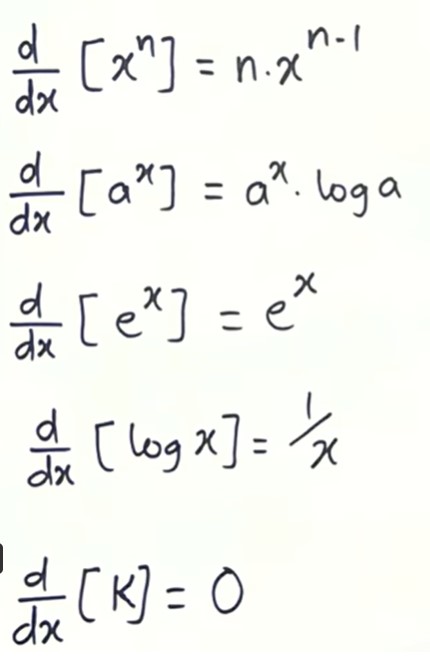 d/dx [xⁿ] = n·xⁿ⁻¹
d/dx [aˣ] = aˣ· log a
d/dx [eˣ] = eˣ
d/dx [log x] = 1/x
d/dx [K] = 0